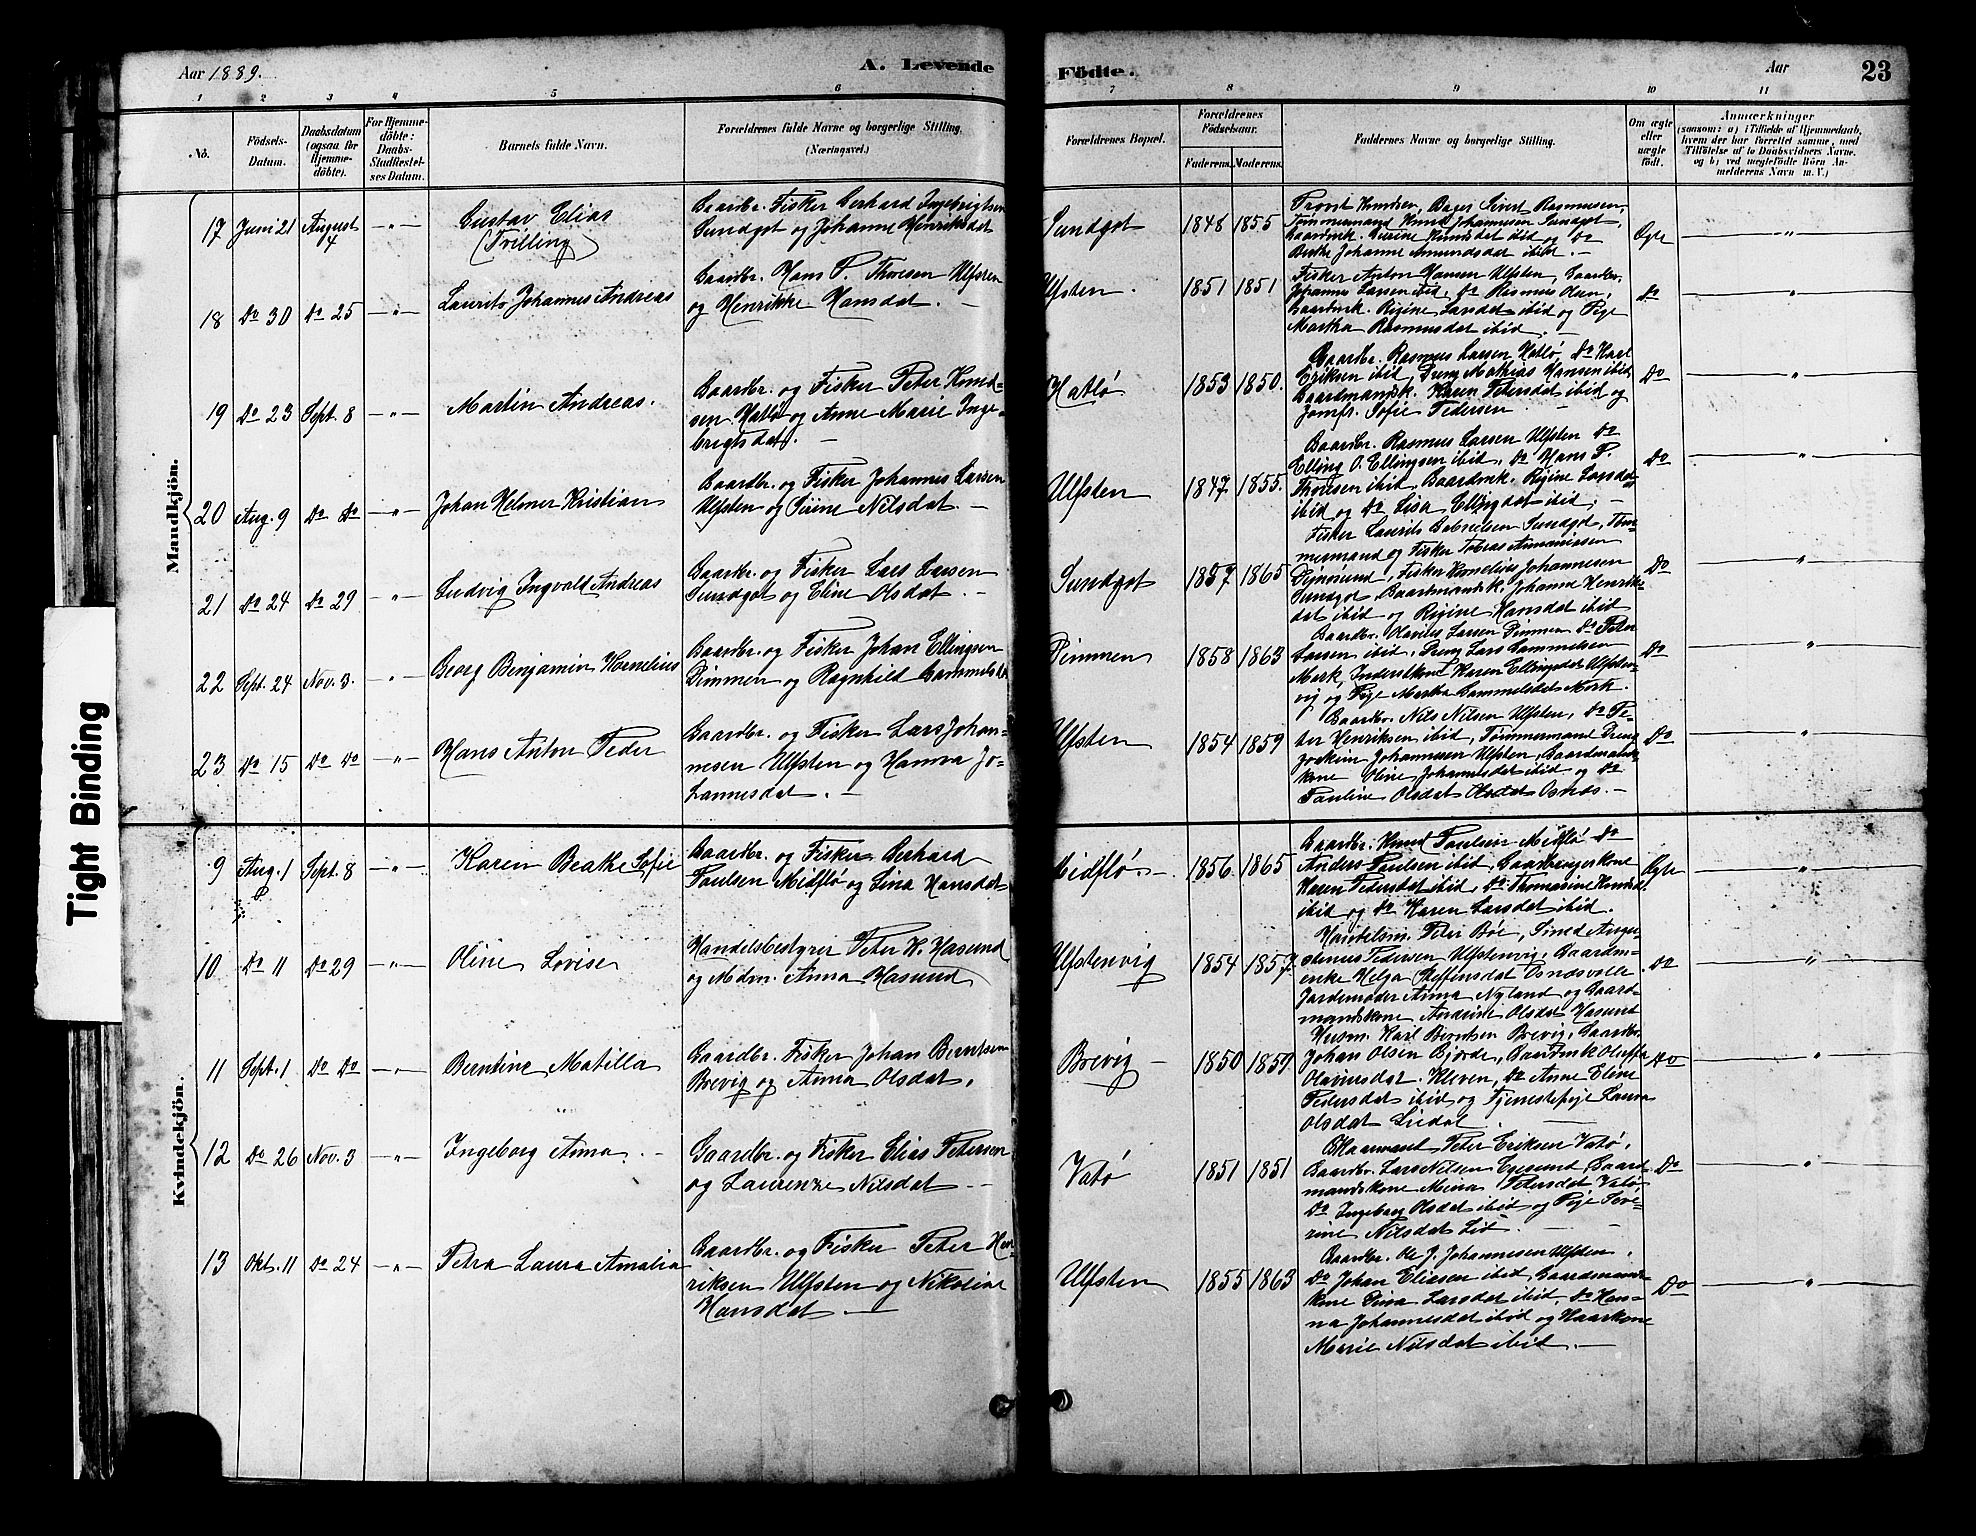 Tight Binding
Aar 1889.
A. Levende
Födte.
Aar
23
1 2 3 4 5 6 7 8 9 10 11
No.
Födsels-
Datum.
Daabsdatum
(ogsaa for
Hjemme-
döbte).
For Hjemme-
döbte:
Daabs-
Stadfæstel-
ses Datum.
Barnets fulde Navn.
Forældrenes fulde Navne og borgerlige Stilling.
(Næringsvei.)
Forældrenes Bopæl.
Forældrenes
Födselsaar.
Faderens. Moderens.
Faddernes Navne og borgerlige Stilling.
Om ægte
eller
uægte
födt.
Anmærkninger
(saasom: a) i Tilfælde af Hjemmedaab,
hvem der har forrettet samme, med
Tilföielse af to Daabsvidners Navne.
og b) ved uægtefödte Börn An-
melderens Navn m. V.)
Mandkjön.
17 Juni 21 August 4 -"- Gustav Elias
(Trilling)
Gaardbr. Fisker Gerhard Ingebrigtsen
Sundgot og Johanne Henriksdat
Sundgot 1848 1855
Provst Knudsen, Bager Sivert Rasmussen,
Tømmermand Knud Johannesen Sundgot,
Gaardmk. Gurine Knudsdat ibid og Do
Berthe Johanne Amundsdat ibid. -
Ægte "
18 Do 30 Do 25 -"- Laurits Johannes Andreas
Gaardbr. Hans P. Thoresen Ulfsten
og Henrikke Hansdat. -
Ulfsten. 1851 1851
Fisker Anton Hansen Ulfsten, Gaardbr.
Johannes Larsen ibid, Do Rasmus Olsen,
Gaardmk. Regine Larsdat ibid og Pige
Martha Rasmusdat ibid. -
Do "
19 Do 23 Sept. 8 -"- Martin Andreas.
Gaardbr. og Fisker Peter Knud-
sen Hatlø og Anne Marie Inge-
brigtsdat. -
Hatlø 1853 1850.
Gaardbr. Rasmus Larsen Hatlø, Do Karl
Eriksen ibid, Dreng Mathias Hansen ibid,
Gaardmandsk. Karen Petersdat ibid og
Jomfr. Sofie Pedersen
Do "
20 Aug. 9 Do Do -"- Johan Helmer Kristian
Gaardbr. og Fisker Johannes Larsen
Ulfsten og Sirine Nilsdat. -
Ulfsten 1847 1855.
Gaardbr. Rasmus Larsen Ulfsten Do
Elling O. Ellingsen ibid, Do Hans P.
Thoresen ibid, Gaardmk. Regine Larsdat
ibid og Do Lisa Ellingsdat ibid. -
Do "
21 Do 24 Do 29 -"- Ludvig Ingvald Andreas
Gaardbr. og Fisker Lars Larsen
Sundgot og Eline Olsdat. -
Sundgot 1857 1865
Fisker Laurits Gabrielsen Sundgot, Tøm-
mermand og Fisker Tobias Ananiassen
Fisker Kornelius Johannesen
Sundgot, Gaardmandsk. Johanne Henriks-
dat ibid og Regine Hansdat ibid
Do "
22 Sept. 24 Nov. 3. -"- Georg Benjamin Kornelius
Gaardbr. og Fisker Johan Ellingsen
Dimmen og Ragnhild Gammelsdat
Dimmen 1858 1863
Gaardbr. Olavius Larsen Dimmen Do Peter
Larsen ibid, Dreng Lars Gammelsen
Mork, Inderstkone Karen Ellingsdat Ulfsten-
vig og Pige Martha Gammelsdat Mork.
Do "
23 Do 15 Do Do -"- Hans Anton Peder
Gaardbr. og Fisker Lars Johan-
nesen Ulfsten og Hanna Jo-
hannesdat. -
Ulfsten 1854 1859
Gaardbr. Nils Nilsen Ulfsten, Do Pe-
ter Henriksen ibid, Tømmermand Dreng
Joakim Johannesen Ulfsten, Gaardmands-
kone Oline Johannesdat ibid og Do
Pauline Olsdat Osnæs. -
Do "
Kvindekjön.
9 Aug. 1 Sept. 8 -"- Karen Beathe Sofie
Gaardbr. og Fisker Gerhard
Paulsen Midflø og Lina Hansdat
Midflø -. 1856. 1865
Gaardbr. Knud Paulsen Midflø Do
Anders Paulsen ibid, Gaardbrugerkone
Karen Pedersdat ibid, Do Thomasine Knudsd.
ibid og Do Karen Larsdat ibid.
Ægte "
10 Do 11 Do 29 -"- Oline Lovise
Handelsbestyrer Peter K. Hasund
og Mdm. Anna Hasund
Ulfstenvig 1854 1857.
Handelsm. Peter Bøe, Smed Augu-
stinus Pedersen Ulfstenvig, Gaardm-
enke Helga Steffensdat Osnesvolle
Jordemoder Anna Nyland og Gaard-
mandskone Andrikke Olsdat Hasund
Do "
11 Sept. 1 Do Do -"- Berntine Matilla
Gaardbr. Fisker Johan Berntsen
Brevig og Anna Olsdat.
Brevig - 1850 1859.
Husm. Karl Berntsen Brevig, Gaardbr.
Johan Olsen Bjørde, Gaardmk. Oluffa
Olavusdat. Kleven, Do Anne Eline
Pedersdat ibid og Tjenestepige Laura
Olsdat Liedal.
Do "
12 Do 26 Nov. 3 -"- Ingeborg Anna. -
Gaardbr. og Fisker Elias Petersen
og Laurenze Nilsdat -
Vatø 1851 1851
Peter Eriksen Vatø,
Gaardbr. Lars Nilsen Eggesund, Gaard-
mandskone Mina Petersdat Vatø
Do Ingeborg Olsdat ibid og Pige Seve-
rine Nilsdat Lid -
Do "
13 Okt. 11 Do 24 -"- Petra Laura Amalia
Gaardbr. og Fisker Peter Hen-
riksen Ulfsten og Nikoline
Hansdat -
Ulfsten 1855 1863
Gaardbr. Ole J. Johannesen Ulfsten,
Do Johan Eliasen ibid, Gaardmands-
kone Dina Larsdat ibid, Do Han-
na Johannesdat ibid og Kaarkone
Marie Nilsdat ibid. -
Do "